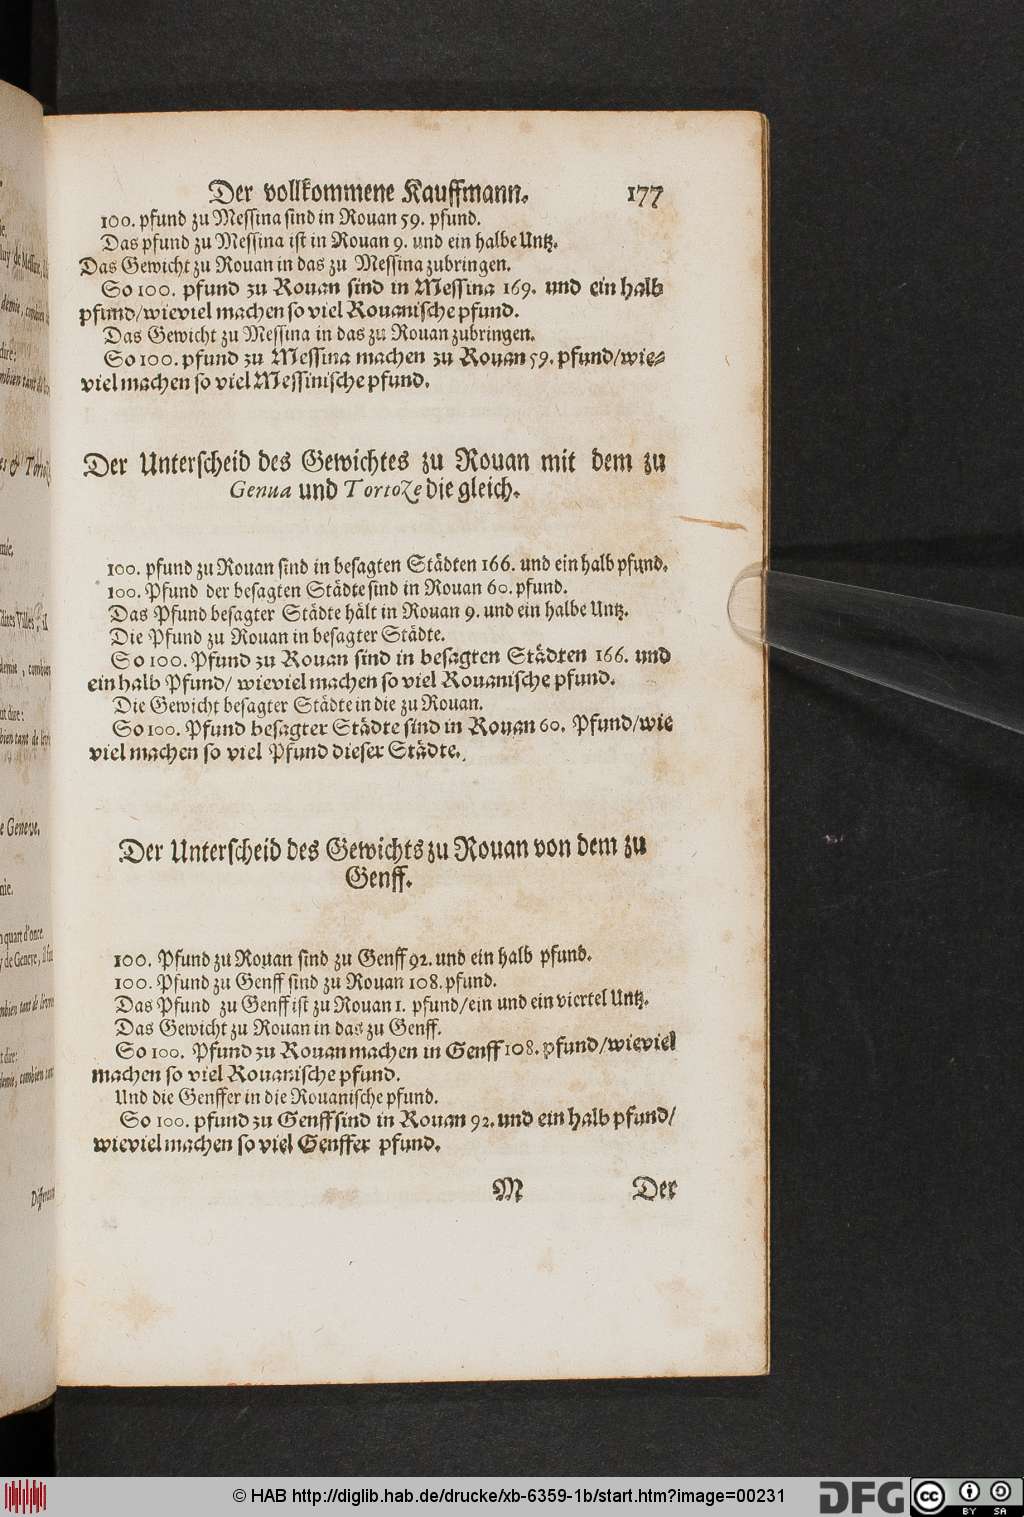 Der vollkommene Kauffmann. 177
100. pfund zu Messina sind in Rouan 59. pfund.
Das pfund zu Messina ist in Rouan 9. und ein halbe Untz.
Das Gewicht zu Rouan in das zu Messina zubringen.
So 100. pfund zu Rouan sind in Messina 169. und ein halb
pfund/wieviel machen so viel Rouanische pfund.
Das Gewicht zu Messina in das zu Rouan zubringen.
So 100. pfund zu Messina machen zu Rouan 59. pfund/wie-
viel machen so viel Messinische pfund.
Der Unterscheid des Gewichtes zu Rouan mit dem zu
Genua und Tortoze die gleich.
100. pfund zu Rouan sind in besagten Städten 166. und ein halb pfund.
100. Pfund der besagten Städte sind in Rouan 60. pfund.
Das Pfund besagter Städte hält in Rouan 9. und ein halbe Untz.
Die Pfund zu Rouan in besagter Städte.
So 100. Pfund zu Rouan sind in besagten Städten 166. und
ein halb Pfund/ wieviel machen so viel Rouanische pfund.
Die Gewicht besagter Städte in die zu Rouan.
So 100. Pfund besagter Städte sind in Rouan 60. Pfund/wie
viel machen so viel Pfund dieser Städte.
Der Unterscheid des Gewichts zu Rouan von dem zu
Genff.
100. Pfund zu Rouan sind zu Genff 92. und ein halb pfund.
100. Pfund zu Genff sind zu Rouan 108. pfund.
Das Pfund zu Genff ist zu Rouan 1. pfund/ein und ein viertel Untz.
Das Gewicht zu Rouan in das zu Genff.
So 100. Pfund zu Rouan machen in Genff 108. pfund/wieviel
machen so viel Rouanische pfund.
Und die Genffer in die Rouanische pfund.
So 100. pfund zu Genff sind in Rouan 92. und ein halb pfund/
wieviel machen so viel Genffer pfund.
M Der
© HAB http://diglib.hab.de/drucke/xb-6359-1b/start.htm?image=00231
DFG
cc BY SA